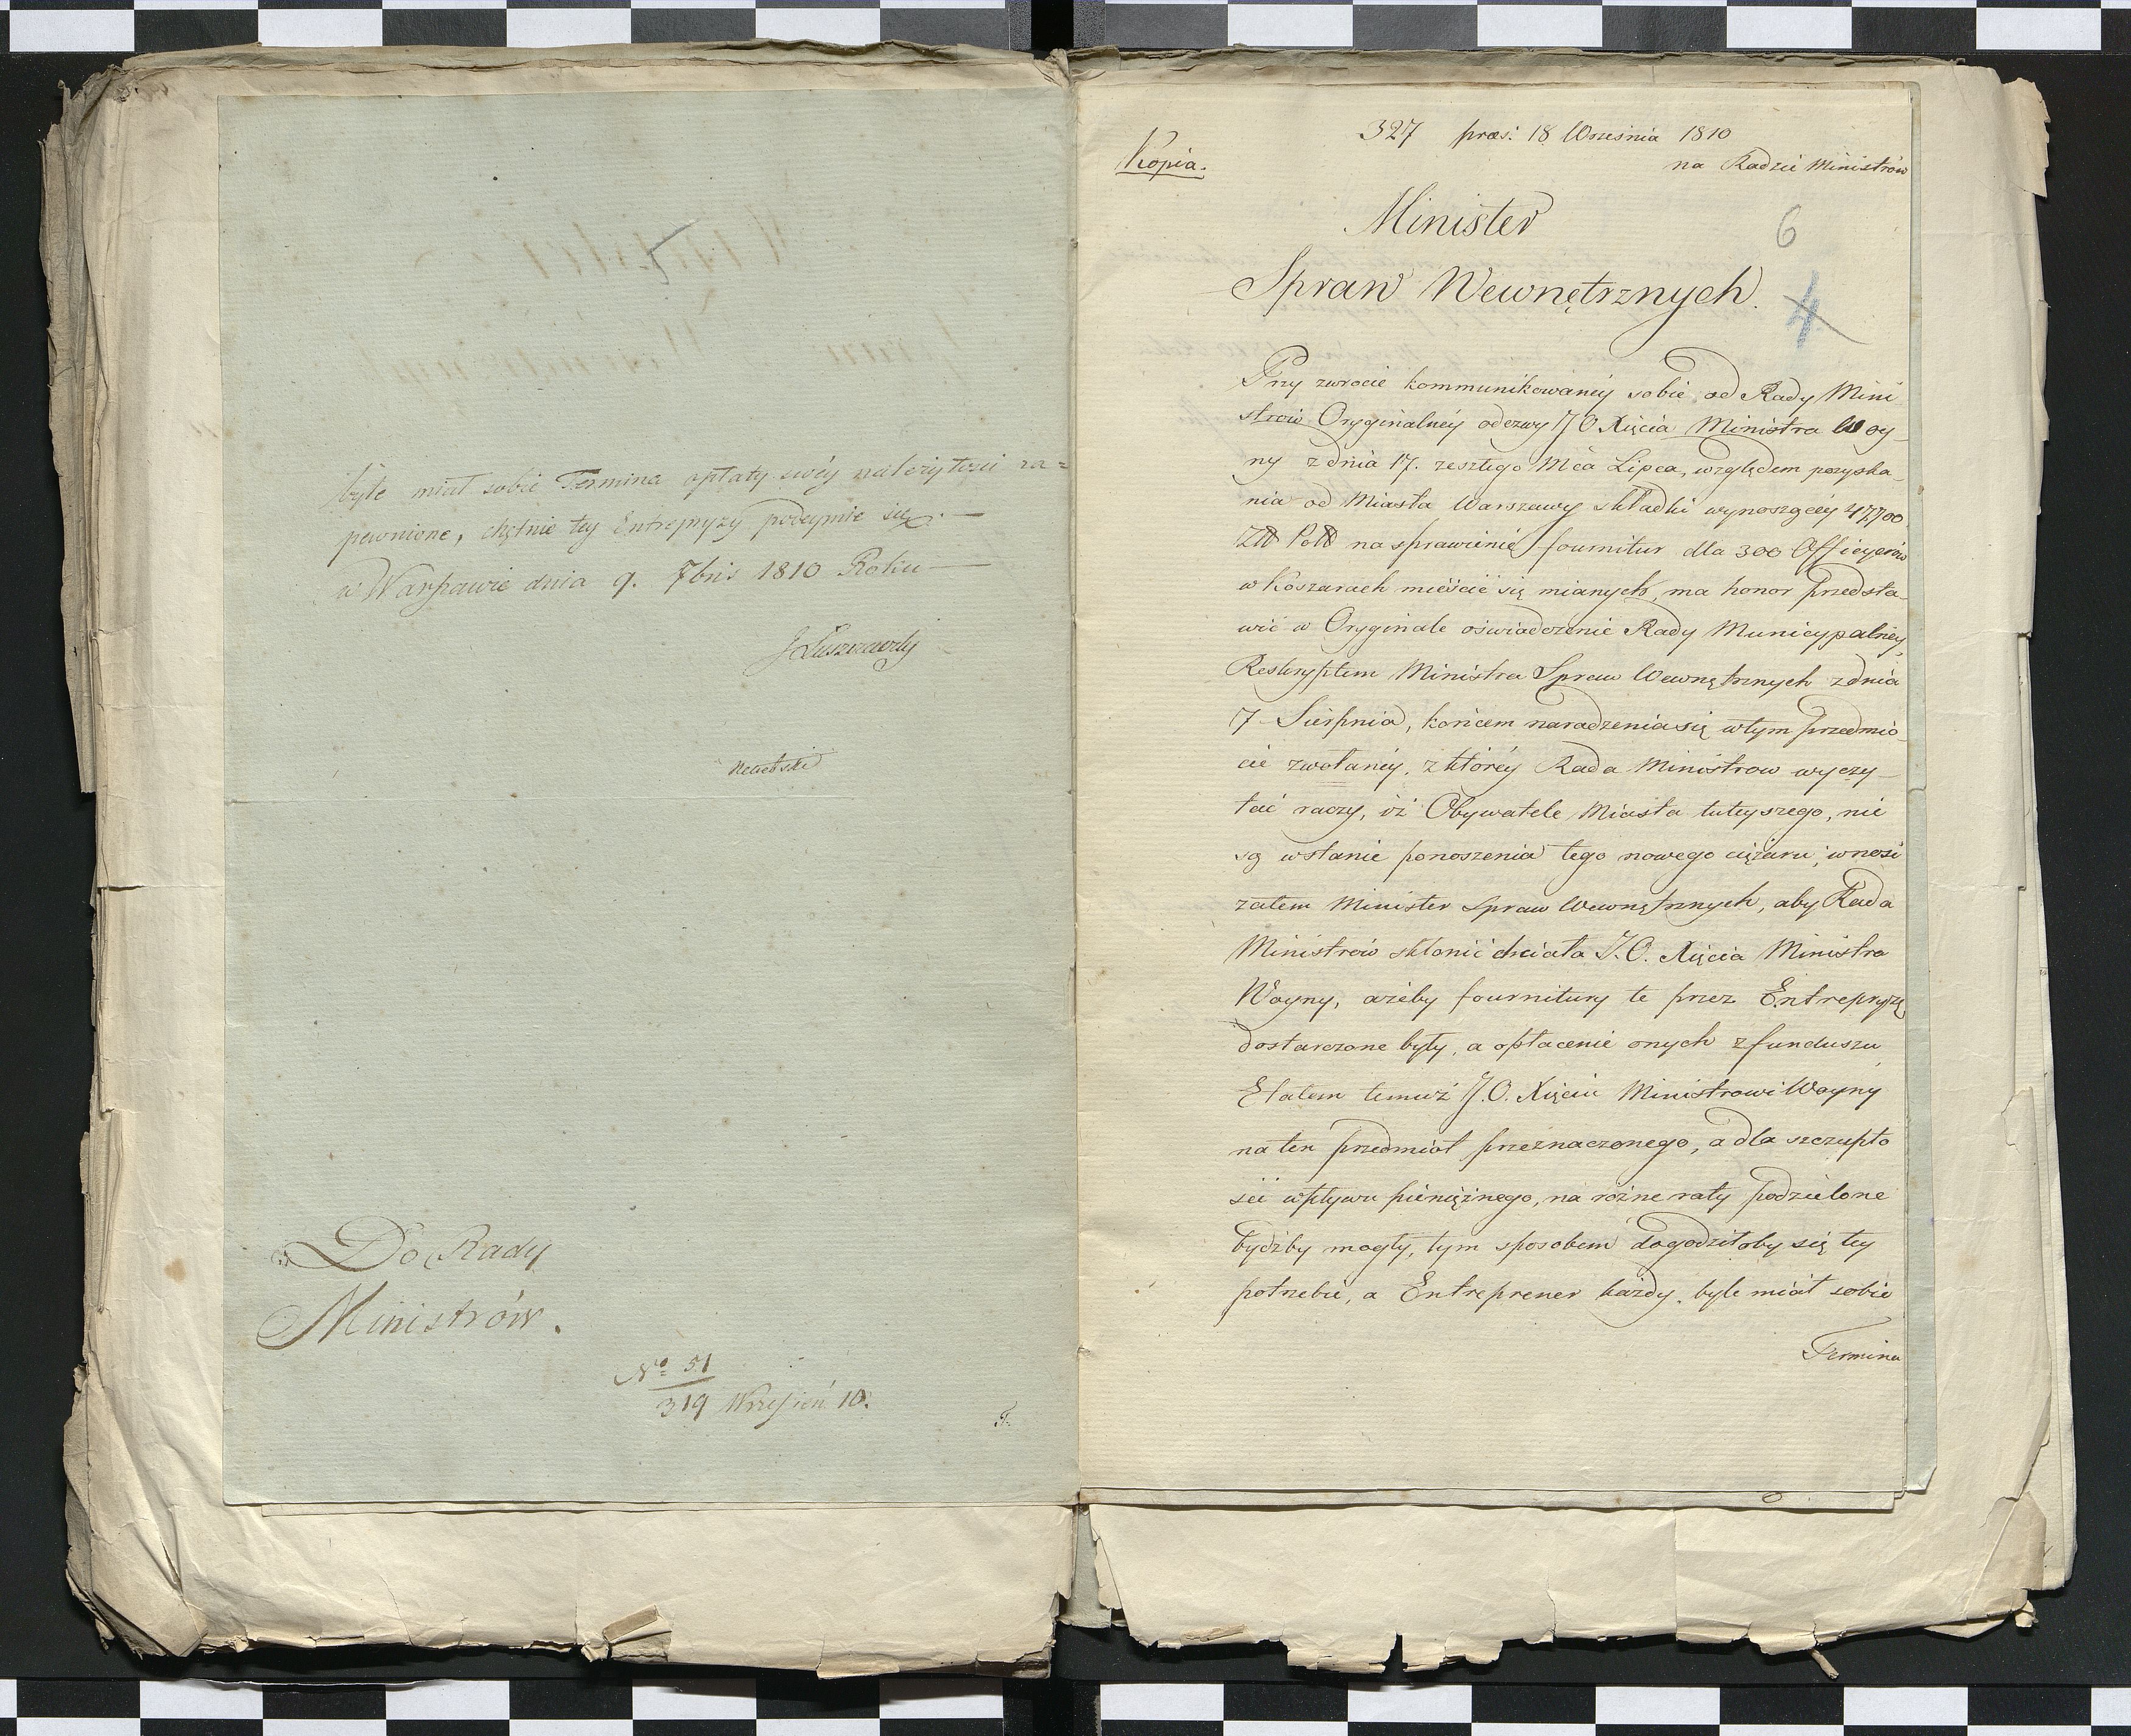 byle miał sobie Termina opłaty swéy należytości za=
pewnione, chętnie tey Entrepryzy podeymie się. —
w Warszawie dnia 9. 7bris 1810 Roku —
J Łuszczewski
Do Rady
Ministrów.
N° 51
319 Wrzesień 10.
327 præs: 18 Września 1810
na Radzie Ministrów
Kopia.
Minister
6
Spraw Wewnętrznych.
4
Przy zwrocie kommunikowanéy sobie od Rady Mini
strów Oryginalnéy odezwy J O Xięcia Ministra Woy_
ny z dnia 17. zeszłego Mca Lipca, względem pozyska_
nia od Miasta Warszawy składki wynoszącéy 47,700
Zł Pol na sprawienie fournitur dla 300 Officyerów
w Koszarach mieścić się mianych, ma honor przedsta_
wić w Oryginale oświadczenie Rady Municypalnéy,
Reskryptem Ministra Spraw Wewnętrznych z dnia
7 Sierpnia, końcem naradzenia się w tym przedmio_
cie zwołanéy, z któréy Rada Ministrow wyczy_
tać raczy, iż Obywatele Miasta tuteyszego, nie
są w stanie ponoszenia tego nowego ciężaru; wnosi
zatem Minister Spraw Wewnętrznych, aby Rada
Ministrów skłonić chciała J.O. Xięcia Ministra
Woyny, ażeby fournitury te przez Entrepryzę
dostarczone były, a opłacenie onych z funduszu
Etatem temuż J.O. Xięciu Ministrowi Woyny
na ten przedmiot przeznaczonego, a dla szczupło
ści wpływu pieniężnego, na różne raty podzielone
bydźby mogły, tym sposobem dogodziłoby się tey
potrzebie, a Entreprener każdy, byle miał sobie
Termina